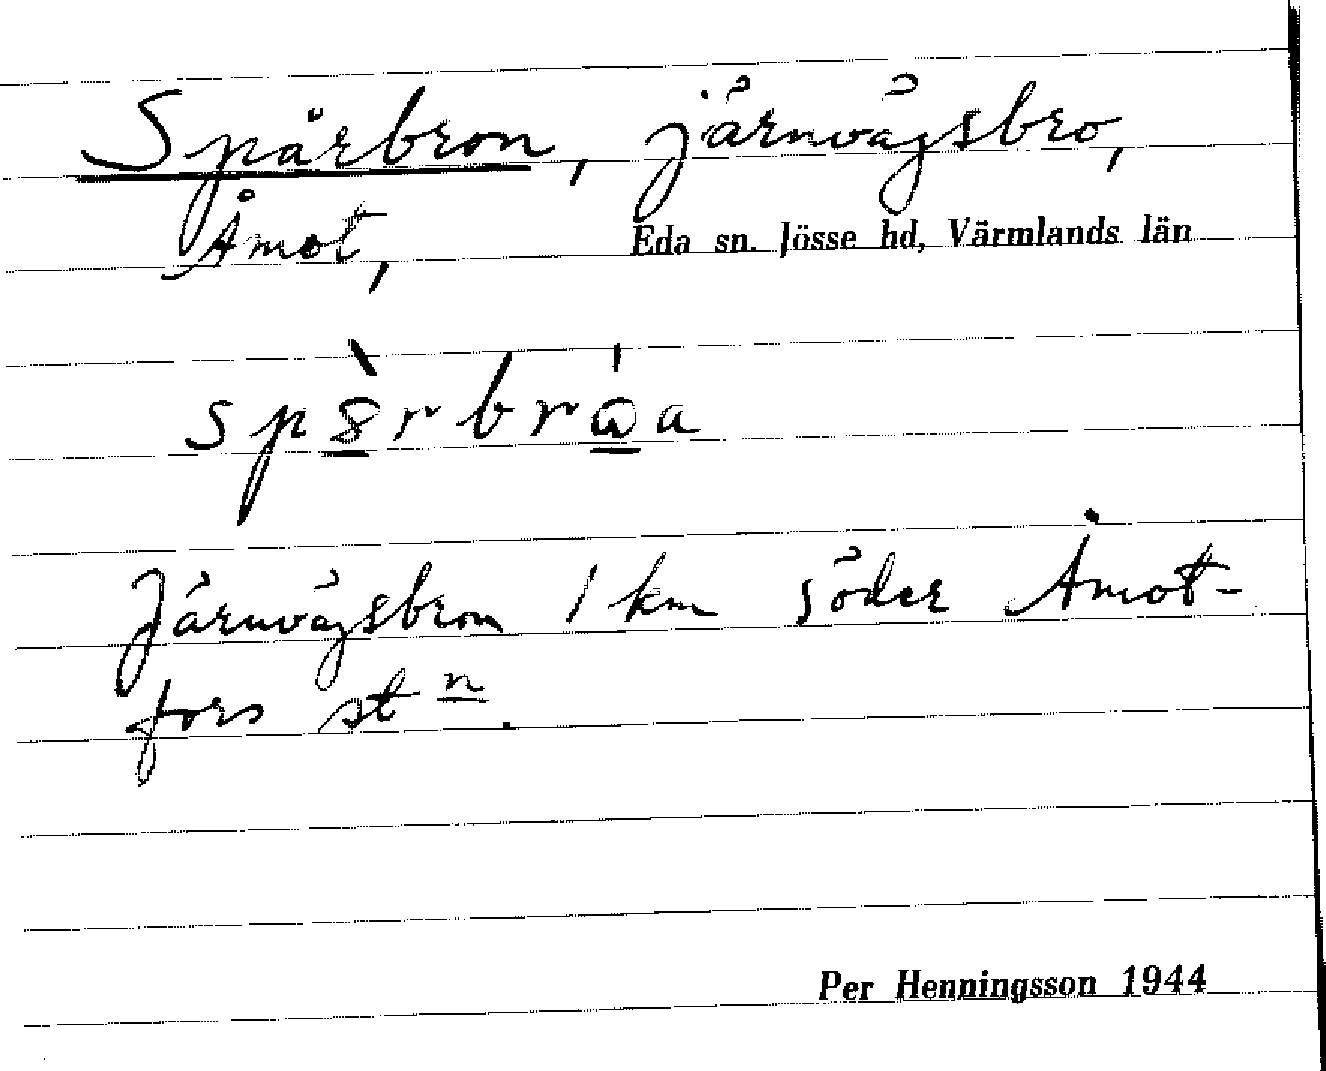 Spårbron, järnvägsbro,
Åmot, Eda sn. Jösse hd, Värmlands län
Järnvägsbron 1 km söder Åmot-
fors stn.
Per Henningsson 1944